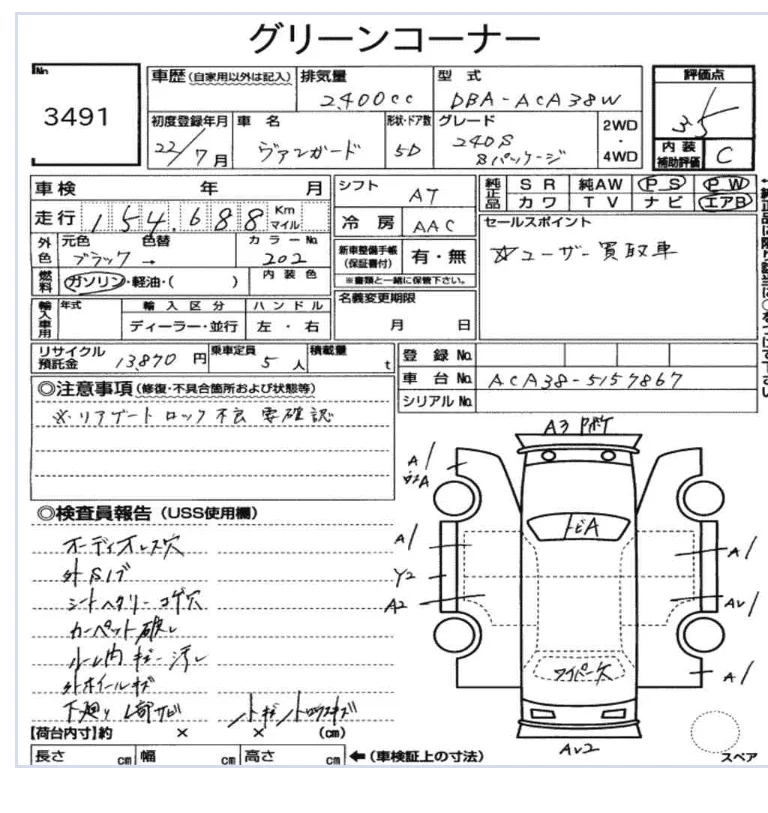 グリーンコーナー
No
3491
車歴(自家用以外は記入)
排気量
2,400cc
型式
DBA-ACA38W
評価点
3.5
初度登録年月
22/7月
車名
ヴァンガード
形状・ドア数
5D
グレード
240S
Sパッケージ
2WD
・
4WD
内装
補助評価
C
車検 年 月
シフト
AT
純正品
SR 純AW PS PW
カワ TV ナビ エアB
走行 154,688 Km マイル
冷房
AAC
セールスポイント
☆ユーザー買取車
外色
元色 色替
ブラック →
カラーNo.
202
新車整備手帳
(保証書付)
有・無
※書類と一緒に保管下さい。
燃料
ガソリン・軽油・( )
内装色
名義変更期限
月 日
輸入車用
年式
輸入区分
ディーラー・並行
ハンドル
左・右
リサイクル
預託金
13,870円
乗車定員
5人
積載量
t
登録No.
車台No.
ACA38-5157867
シリアルNo.
◎注意事項(修復・不具合箇所および状態等)
※リアゲートロック不良 要確認
◎検査員報告(USS使用欄)
オーディオレス穴
シートヘタリ コゲ穴
カーペット破レ
ルーム内キズ 汚レ
外ホイールキズ
A3
A1
A
トビA
A1
A1
Y2
A2
A1
ワイパー欠
AU2
スペア
【荷台内寸】約 × × (cm)
長さ cm 幅 cm 高さ cm ←(車検証上の寸法)